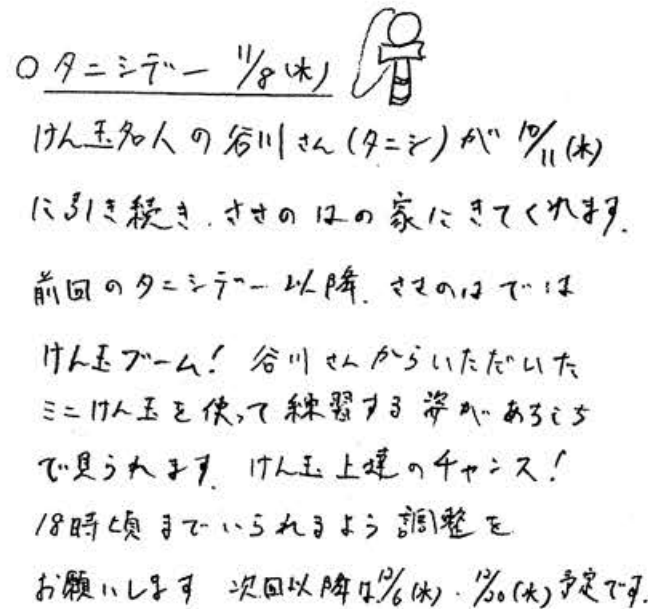 ○ タニシデー 11/8(水)
けん玉名人の谷川さん(タニシ)が10/11(水)
に引き続き、ささのはの家にきてくれます。
前回のタニシデー以降、ささのはでは
けん玉ブーム! 谷川さんからいただいた
ミニけん玉を使って練習する姿があちこち
で見られます。けん玉上達のチャンス!
18時頃までいられるよう調整を
お願いします 次回以降は12/6(水)・12/20(水)予定です。